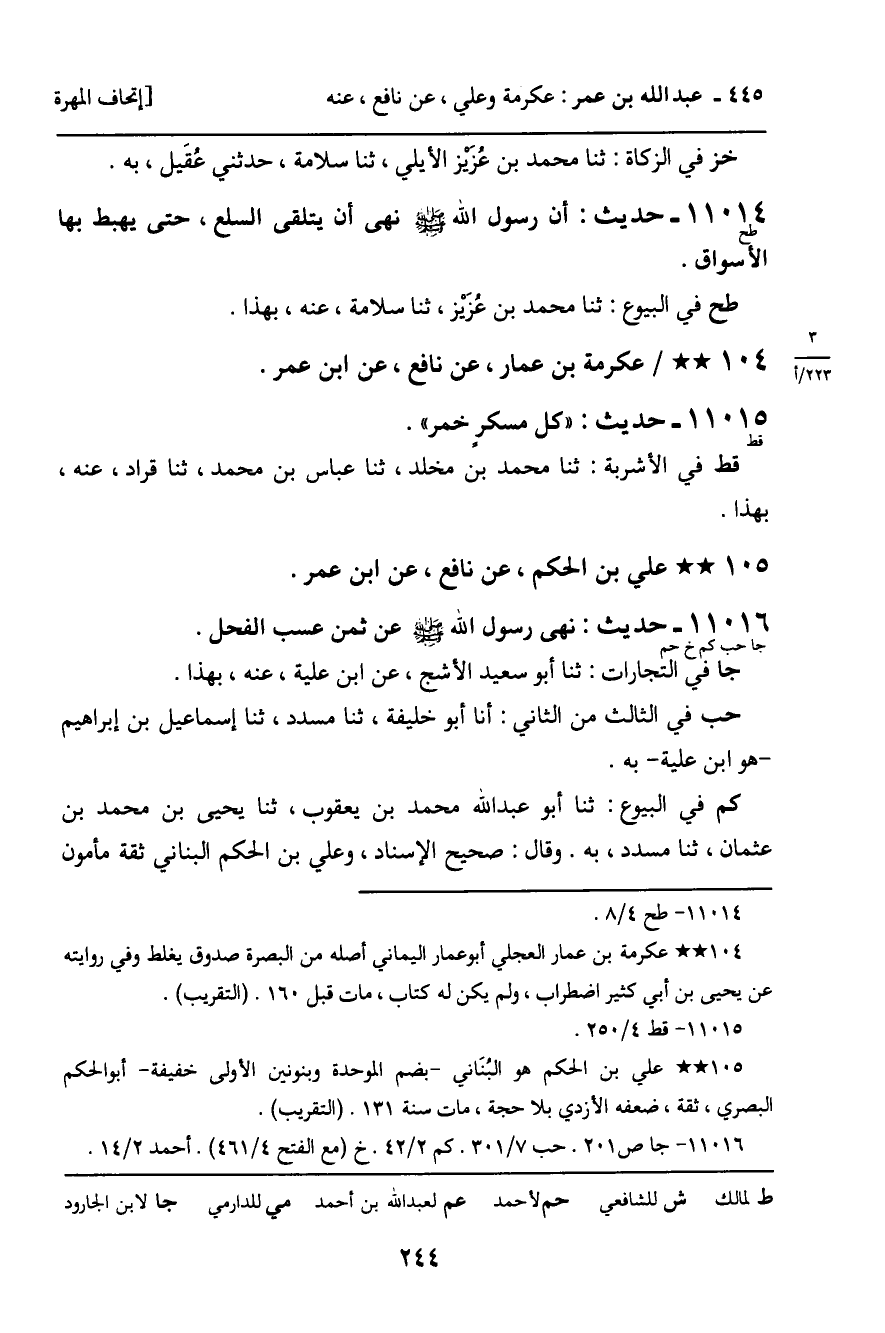 ٤٤٥ ـ عبدالله بن عمر : عكرمة وعلي ، عن نافع ، عنه [إتحاف المهرة
خز في الزكاة : ثنا محمد بن عُزَيْز الأيلي ، ثنا سلامة ، حدثني عُقَيل ، به .
١١٠١٤ ـ حديث : أن رسول الله ﷺ نهى أن يتلقى السلع ، حتى يهبط بها
طح
الأسواق .
طح في البيوع : ثنا محمد بن عُزَيْز ، ثنا سلامة ، عنه ، بهذا .
١٠٤ ★★ / عكرمة بن عمار ، عن نافع ، عن ابن عمر .
٣
٢٢٣/أ
١١٠١٥ ـ حديث : «كل مسكرٍ خمر» .
قط
قط في الأشربة : ثنا محمد بن مخلد ، ثنا عباس بن محمد ، ثنا قراد ، عنه ،
بهذا .
١٠٥ ★★ علي بن الحكم ، عن نافع ، عن ابن عمر .
١١٠١٦ ـ حديث : نهى رسول الله ﷺ عن ثمن عسب الفحل .
جا حب كم خ حم
جا في التجارات : ثنا أبو سعيد الأشج ، عن ابن علية ، عنه ، بهذا .
حب في الثالث من الثاني : أنا أبو خليفة ، ثنا مسدد ، ثنا إسماعيل بن إبراهيم
-هو ابن علية- به .
كم في البيوع : ثنا أبو عبدالله محمد بن يعقوب ، ثنا يحيى بن محمد بن
عثمان ، ثنا مسدد ، به . وقال : صحيح الإسناد ، وعلي بن الحكم البناني ثقة مأمون
١١٠١٤- طح ٨/٤ .
١٠٤★★ عكرمة بن عمار العجلي أبوعمار اليماني أصله من البصرة صدوق يغلط وفي روايته
عن يحيى بن أبي كثير اضطراب ، ولم يكن له كتاب ، مات قبل ١٦٠ . (التقريب) .
١١٠١٥- قط ٢٥٠/٤ .
١٠٥★★ علي بن الحكم هو البُنَاني -بضم الموحدة وبنونين الأولى خفيفة- أبوالحكم
البصري ، ثقة ، ضعفه الأزدي بلا حجة ، مات سنة ١٣١ . (التقريب) .
١١٠١٦- جا ص٢٠١ . حب ٣٠١/٧ . كم ٤٢/٢ . خ (مع الفتح ٤٦١/٤) . أحمد ١٤/٢ .
ط لمالك ش للشافعي حم لأحمد عم لعبدالله بن أحمد مي للدارمي جا لابن الجارود
٢٤٤